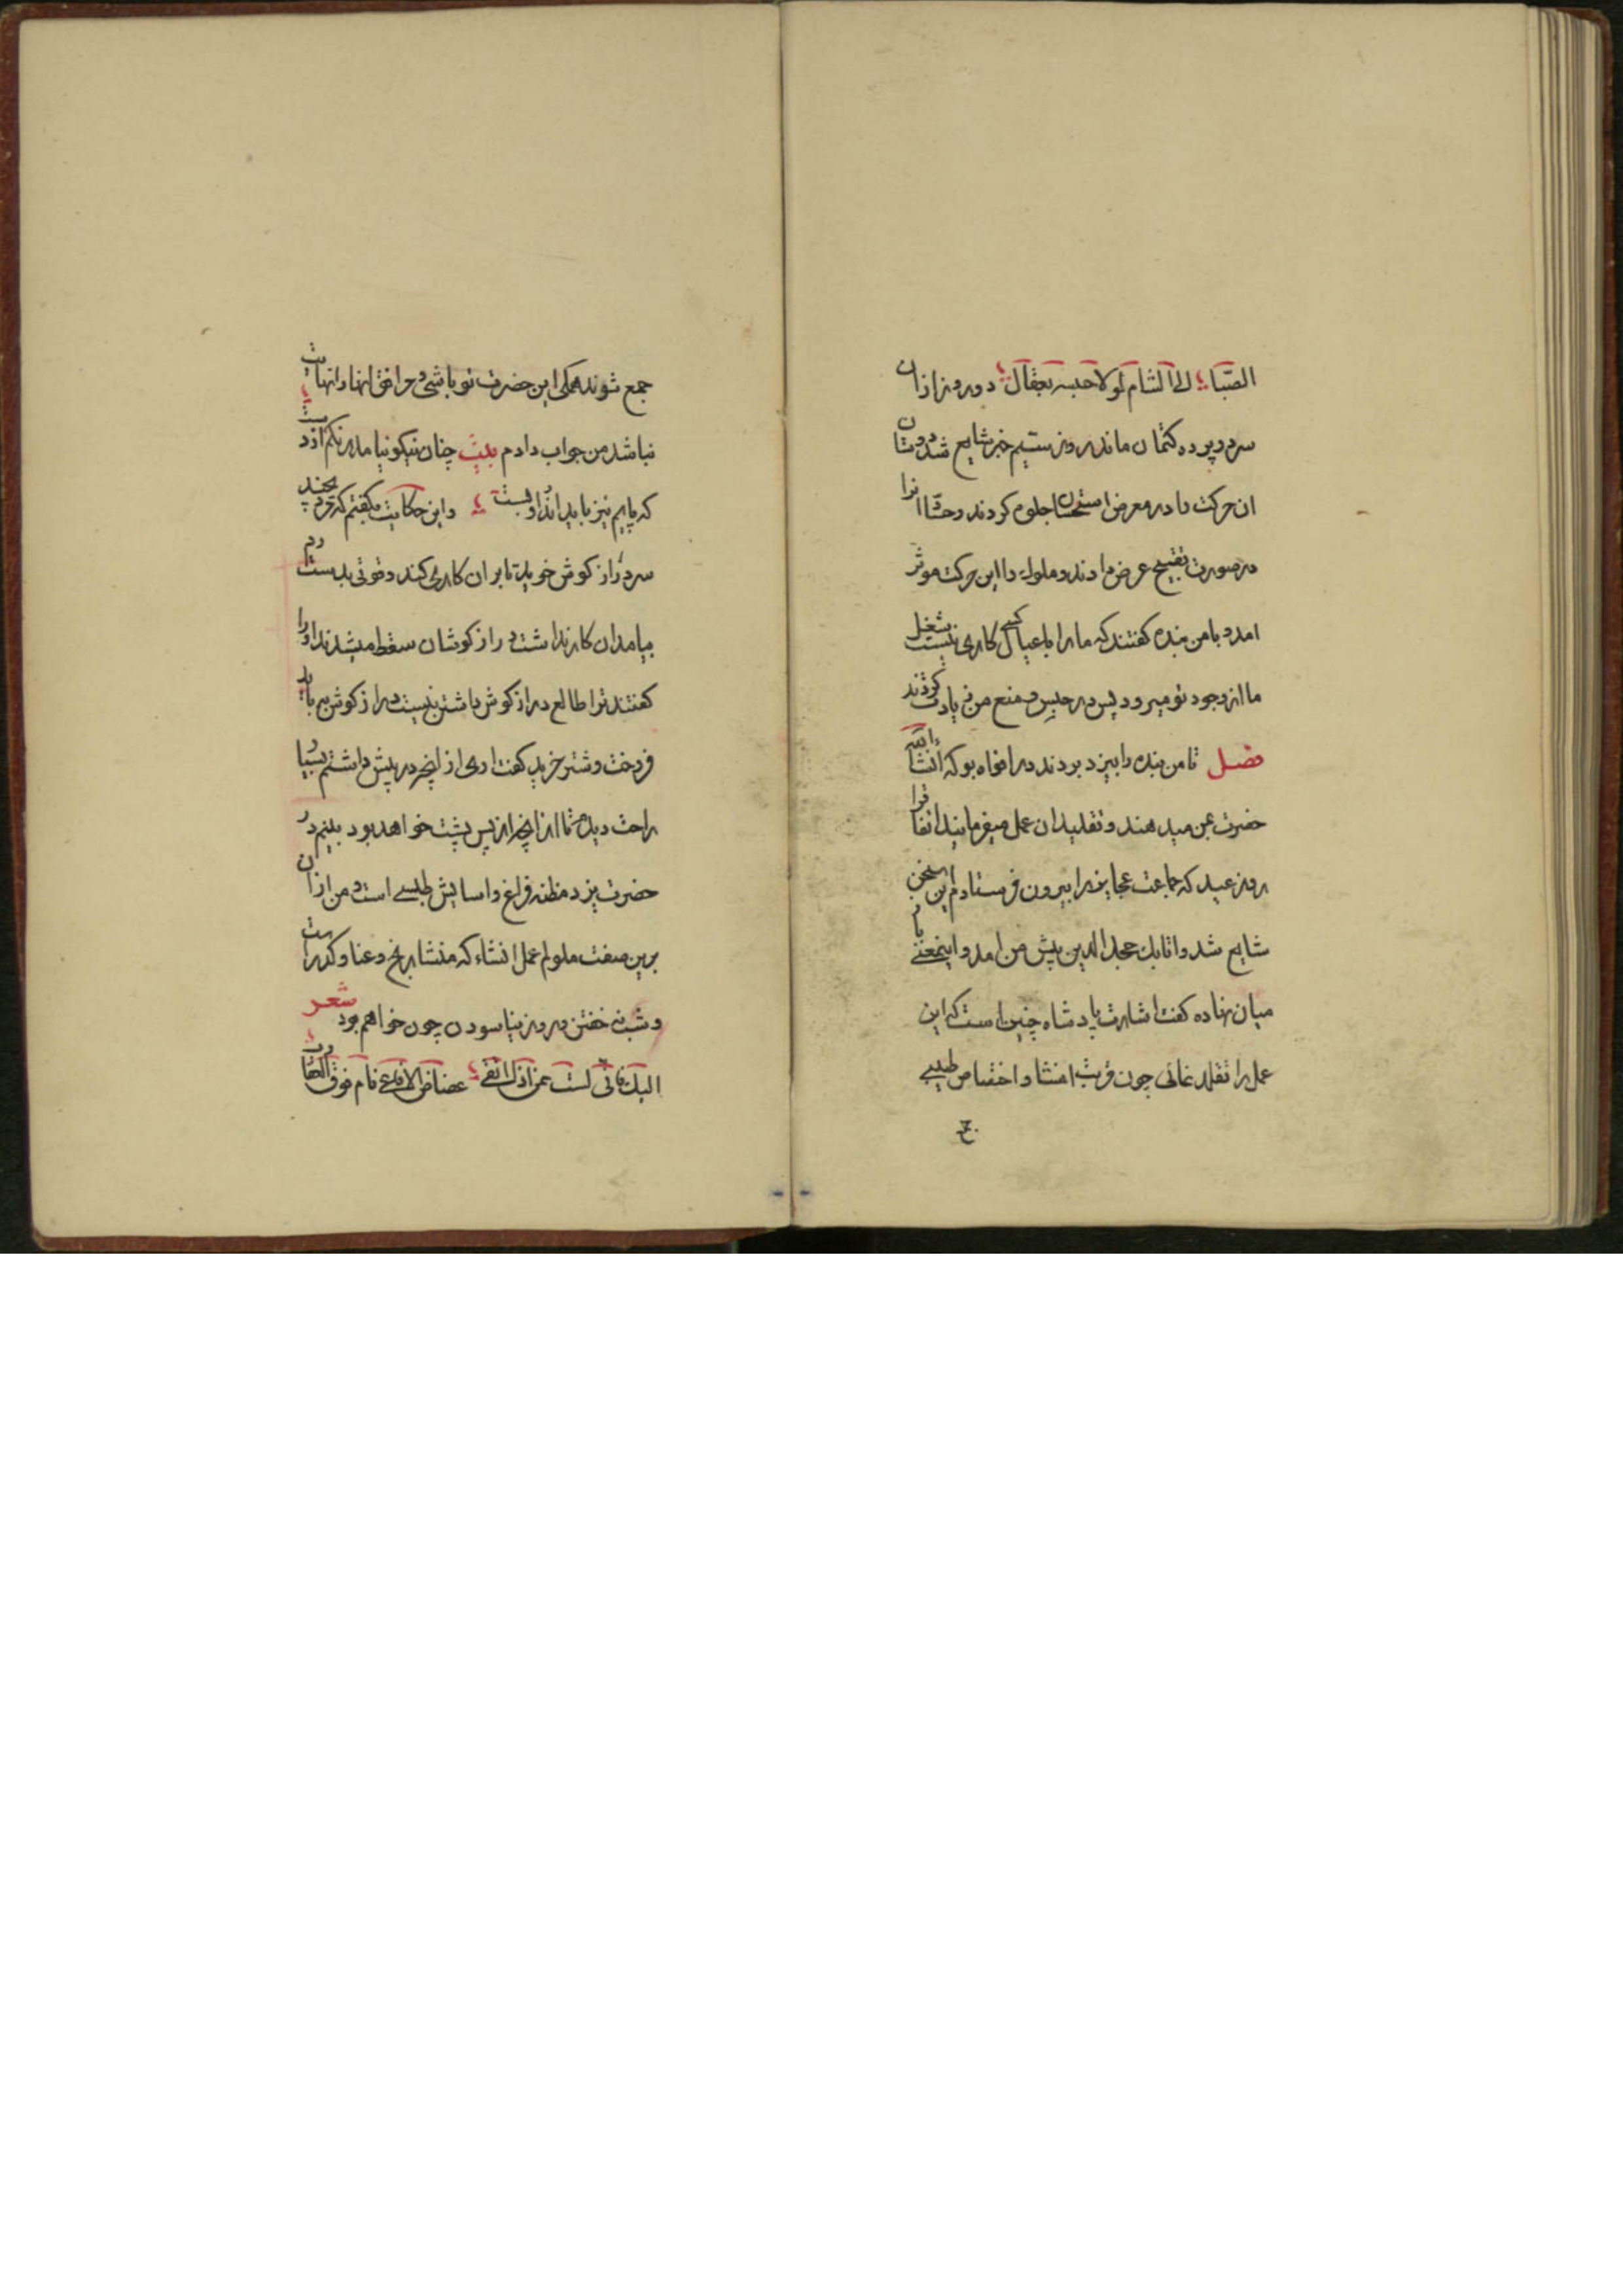 الصّبا الی الشام لولا حبسه بعقال دو روز ازان
سر در پرده کتمان ماند روز ستیم خبر شایع شد دوستان
ان حرکت را در معرض استحسان جلوه کردند و حسّاد انرا
در صورت تقبیح عرض دادند و ملوک را این حرکت موثر
امد و با من بنده کفتند که ما را با عیال کسی کاری نیست شغل
ما از وجود تو میرود پس در حبس و منع من زیادت کردند
فصل تا من بنده را بیزد بردند در افواه بود که انشاء الله
حضرت بمن میدهند و تقلید ان عمل میفرمایند اتفاقرا
روز عید که جماعت عجایز را بیرون فرستادم این سخن
شایع شد و اتابک مجد الدین پیش من امد و اینمعنی با
میان نهاده کفت اشارت پادشاه چنین است که این
عمل را تقلد نمائی چون قربت انشا و اختصاص طیبی
جمع شوند همکی این حضرت تو باشی و مرافق انها را نهایت
نباشد من جواب دادم بیت چنان نیکو نیامد بر نکم از دست
که پایم نیز باید اندرو بست و این حکایت بکفتم که خربنده
سر دراز کوش خرید تا بران کاری کند و قوتی بدست
میامد ان کار نداشت دراز کوشان سقط میشدند او را
کفتند ترا طالع دراز کوش داشتن نیست دراز کوش می باید
فروخت و شتر خرید کفت اری از اینچه در پیش داشتم بسیار
راحت دیدم تا ازانچه از پس پشت خواهد بود بینم در
حضرت یزد مظنه فراغ و اسایش طیبی است و من ازان
برین صفت ملولم عمل انشاء که منشا رنج و عنا و کدورتست
و شب نخفتن و روز نیاسودن چون خواهم بود شعر
الیک فانی لست ممن اذا اتقی عضاض الافاعی نام فوق العقارب